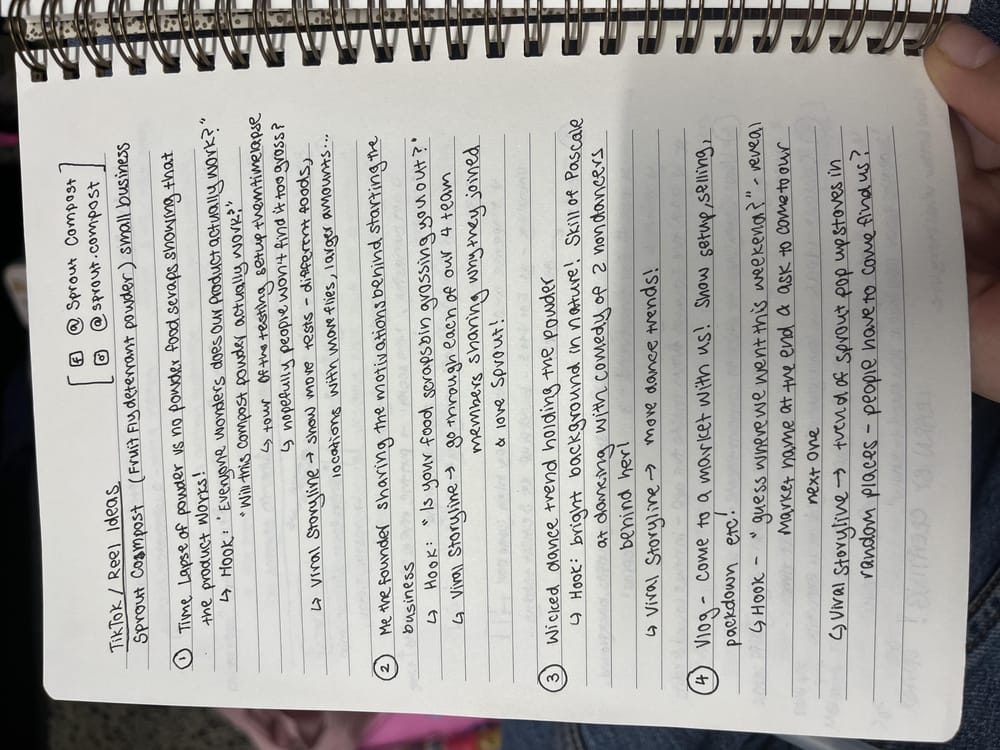 [ f @ Sprout Compost
@sprout.compost ]
TikTok / Reel Ideas
Sprout Compost (Fruit Fly deterrant powder) small business
① Time Lapse of powder vs no powder food scraps showing that
the product works!
↳ Hook: "Everyone wonders does our product actually work?"
"Will this compost powder actually work?"
↳ tour of the testing setup then timelapse
↳ hopefully people won't find it too gross?
↳ Viral Storyline → show more tests - different foods,
locations with more flies, larger amounts...
② Me the founder sharing the motivations behind starting the
business
↳ Hook: "Is your food scraps bin grossing you out?"
↳ Viral Storyline → go through each of our 4 team
members sharing why they joined
& love Sprout!
③ Wicked dance trend holding the powder
↳ Hook: bright background in nature! Skill of Pascale
at dancing with comedy of 2 non dancers
behind her!
↳ Viral Storyline → more dance trends!
④ Vlog - come to a market with us! Show setup, selling,
packdown etc!
↳ Hook - "guess where we went this weekend?" - reveal
market name at the end & ask to come to our
next one
↳ Viral Storyline → trend of Sprout pop up stores in
random places - people have to come find us?